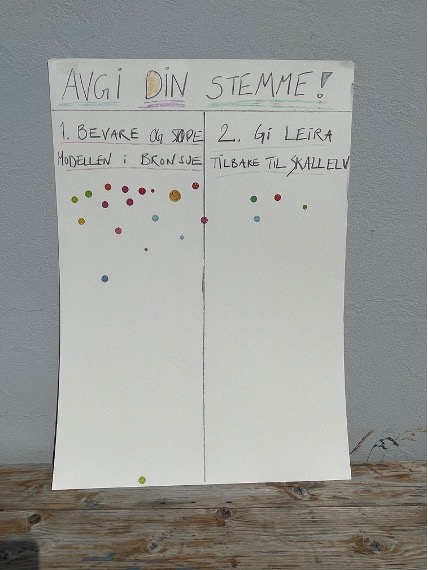 AVGI DIN STEMME!
1. BEVARE OG STØPE
MODELLEN I BRONSJE
2. GI LEIRA
TILBAKE TIL SKALLELV